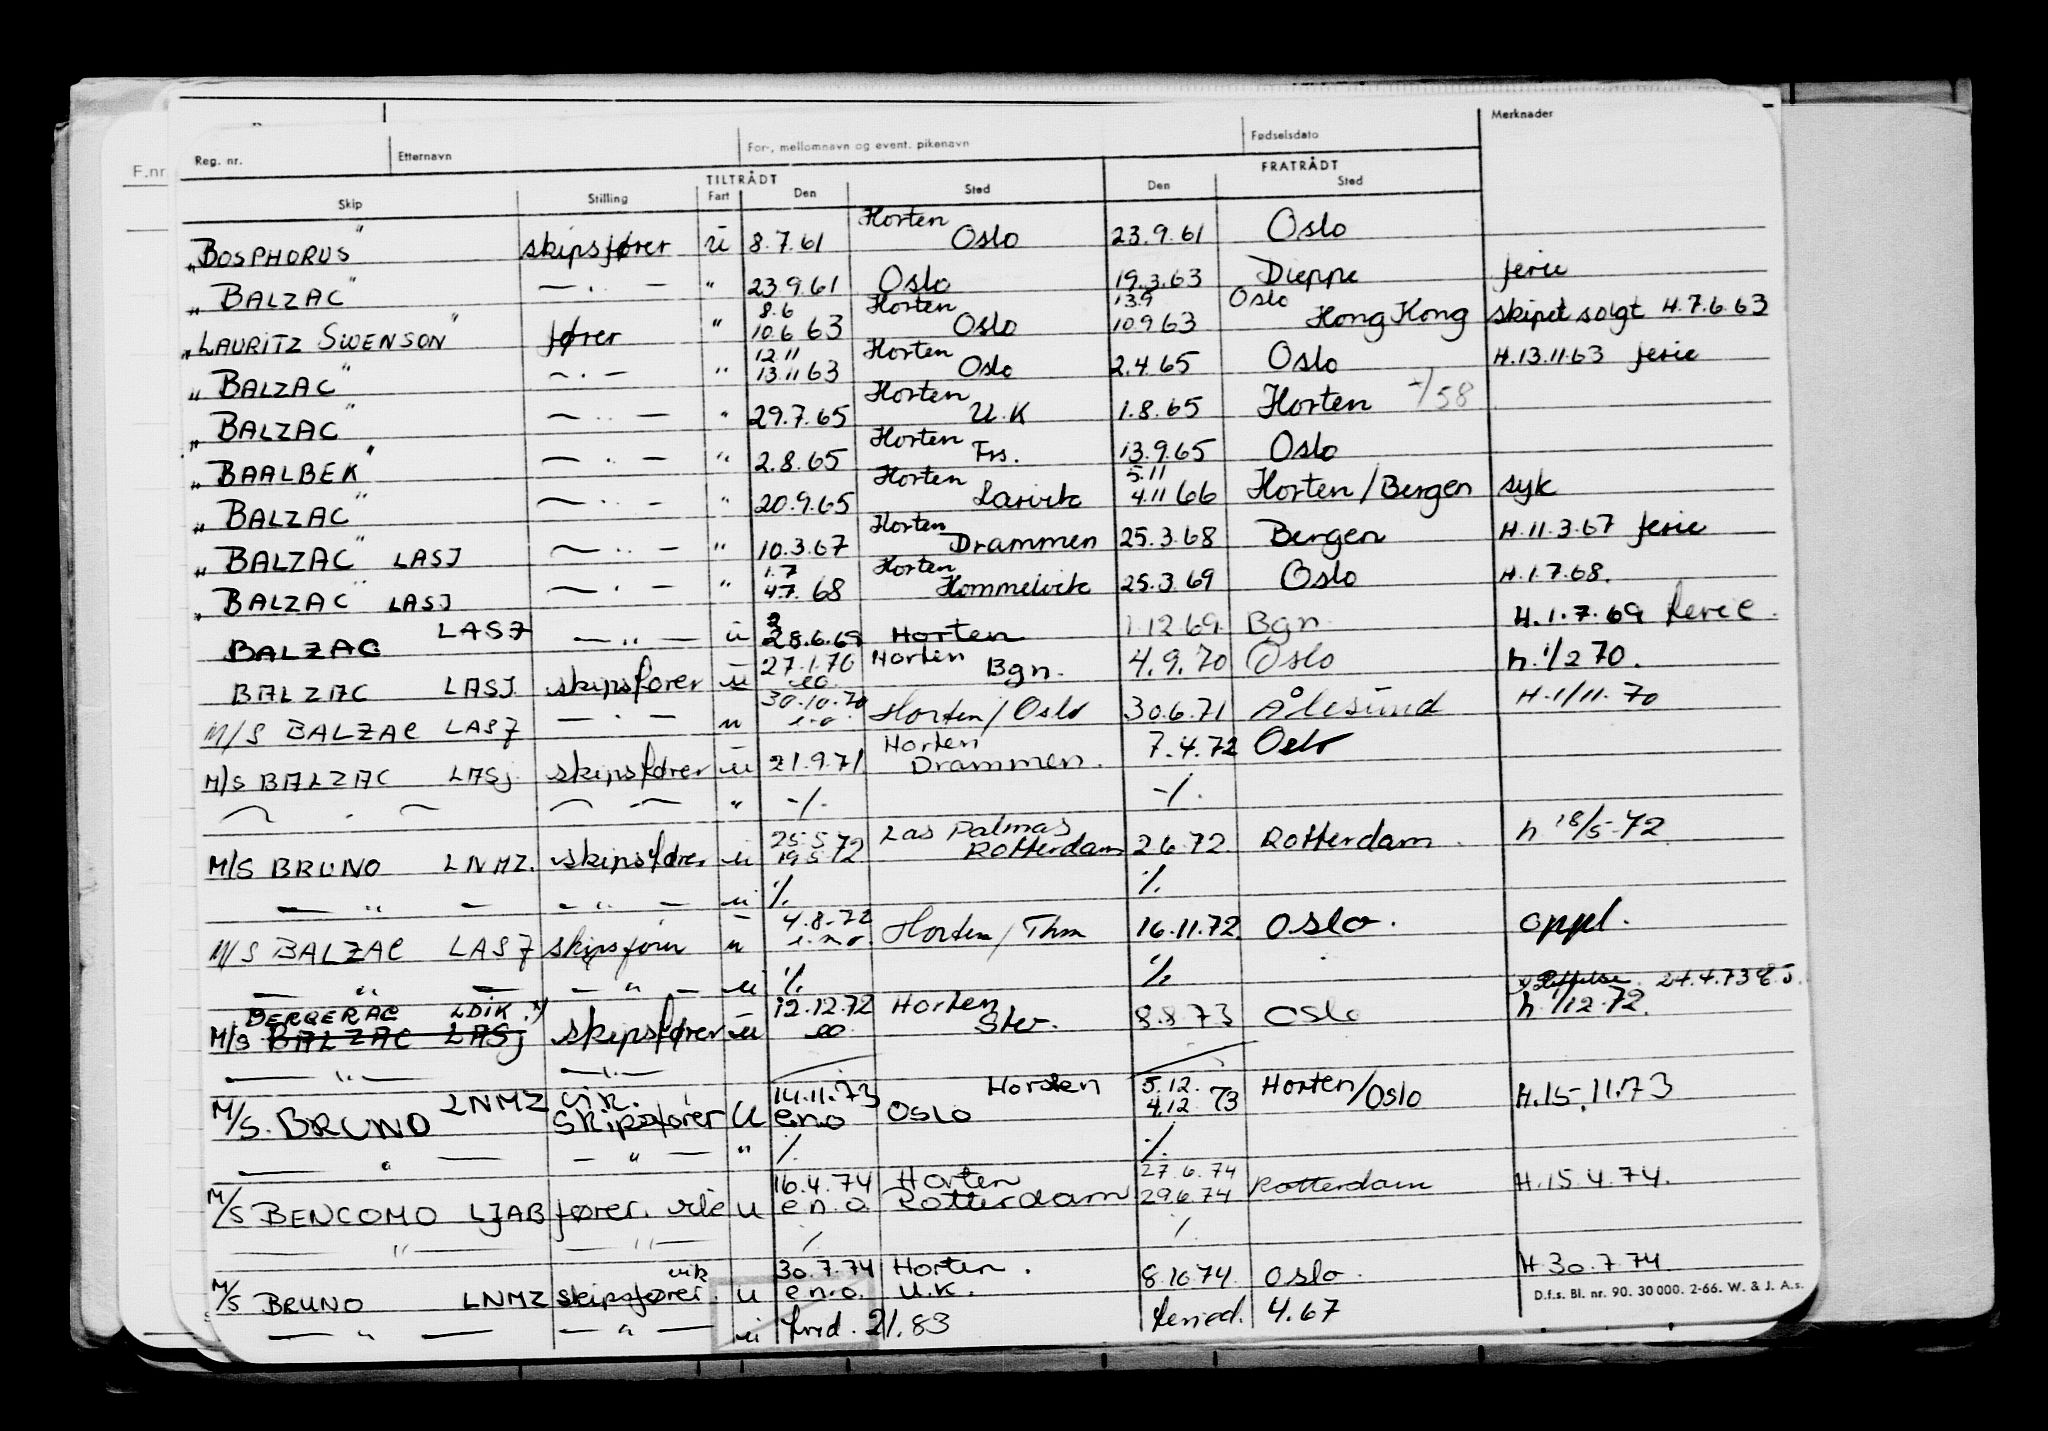 F.nr
Reg. nr. Etternavn For-, mellomnavn og event. pikenavn Fødselsdato Merknader
TILTRÅDT FRATRÅDT
Skip Stilling Fart Den Sted Den Sted
Horten
"BOSPHORUS" skipsfører u 8.7.61 Oslo 23.9.61 Oslo
"BALZAC" — . — " 23.9.61 Oslo 19.3.63 Dieppe ferie
8.6 Horten 13.9 Oslo
"LAURITZ SWENSON" fører " 10.6 63 Oslo 10.9 63 Hong Kong skipet solgt H.7.6.63
12.11 Horten
"BALZAC" — . — " 13.11 63 Oslo 2.4.65 Oslo H.13.11.63 ferie
Horten
"BALZAC" — .. — " 29.7.65 U.K 1.8.65 Horten -/58
Horten
"BAALBEK" — . — " 2.8.65 Frs. 13.9.65 Oslo
Horten 5.11
"BALZAC" — . — " 20.9.65 Larvik 4.11 66 Horten/Bergen syk
Horten
"BALZAC" LASJ — .. — " 10.3.67 Drammen 25.3.68 Bergen H.11.3.67 ferie
1.7 Horten
"BALZAC" LASJ — . — " 4.7. 68 Hommelvik 25.3.69 Oslo H.1.7.68.
BALZAC LASJ — " — u 28.6.69 Horten 1.12.69. Bgn. H.1.7.69 ferie.
27.1.70 Horten
BALZAC LASJ skipsfører u eo Bgn. 4.9.70 Oslo h. 1/2 70.
30.10.70
M/S BALZAC LASJ — . — u e.o. Horten/Oslo 30.6.71 Ålesund H.1/11.70
Horten
M/S BALZAC LASj skipsfører u 21.9.71 Drammen. 7.4.72 Oslo
— . — — . — " -/. -/.
25.5.72 Las Palmas
M/S BRUNO LNMZ. skipsfører u 19.5.72 Rotterdam 2.6.72. Rotterdam. h. 18/5-72
— " — — " — u /. /.
4.8.72
M/S BALZAC LASJ skipsfører u e.n.o. Horten/Thm 16.11.72. Oslo. oppl.
— " — — " — u /. /.
24.4.73
BERGERAC LDIK. x) 12.12.72 Horten
M/S BALZAC LASj skipsfører u eo Stv. 8.8.73 Oslo h. 1/12.72.
— " — — . —
LNMZ vik. 14.11.73 Horsten 5.12.
M/S. BRUNO Skipsfører U e.n.o Oslo 4.12. 73 Horten/Oslo H.15.11.73
— " — — " — " /. /.
16.4.74 Horten 27.6.74
M/S BENCOMO LJAB fører. vik U e.n.o. Rotterdam 29.6.74 Rotterdam H.15.4.74.
— " — — " — /. /.
vik 30.7.74 Horten.
M/S BRUNO LNMZ skipsfører. u e.n.o. U.K. 8.10.74. Oslo. H 30.7.74
D.f.s. Bl. nr. 90. 30 000. 2-66. W. & J. A.s.
— " — — " — u 21.83 4.67